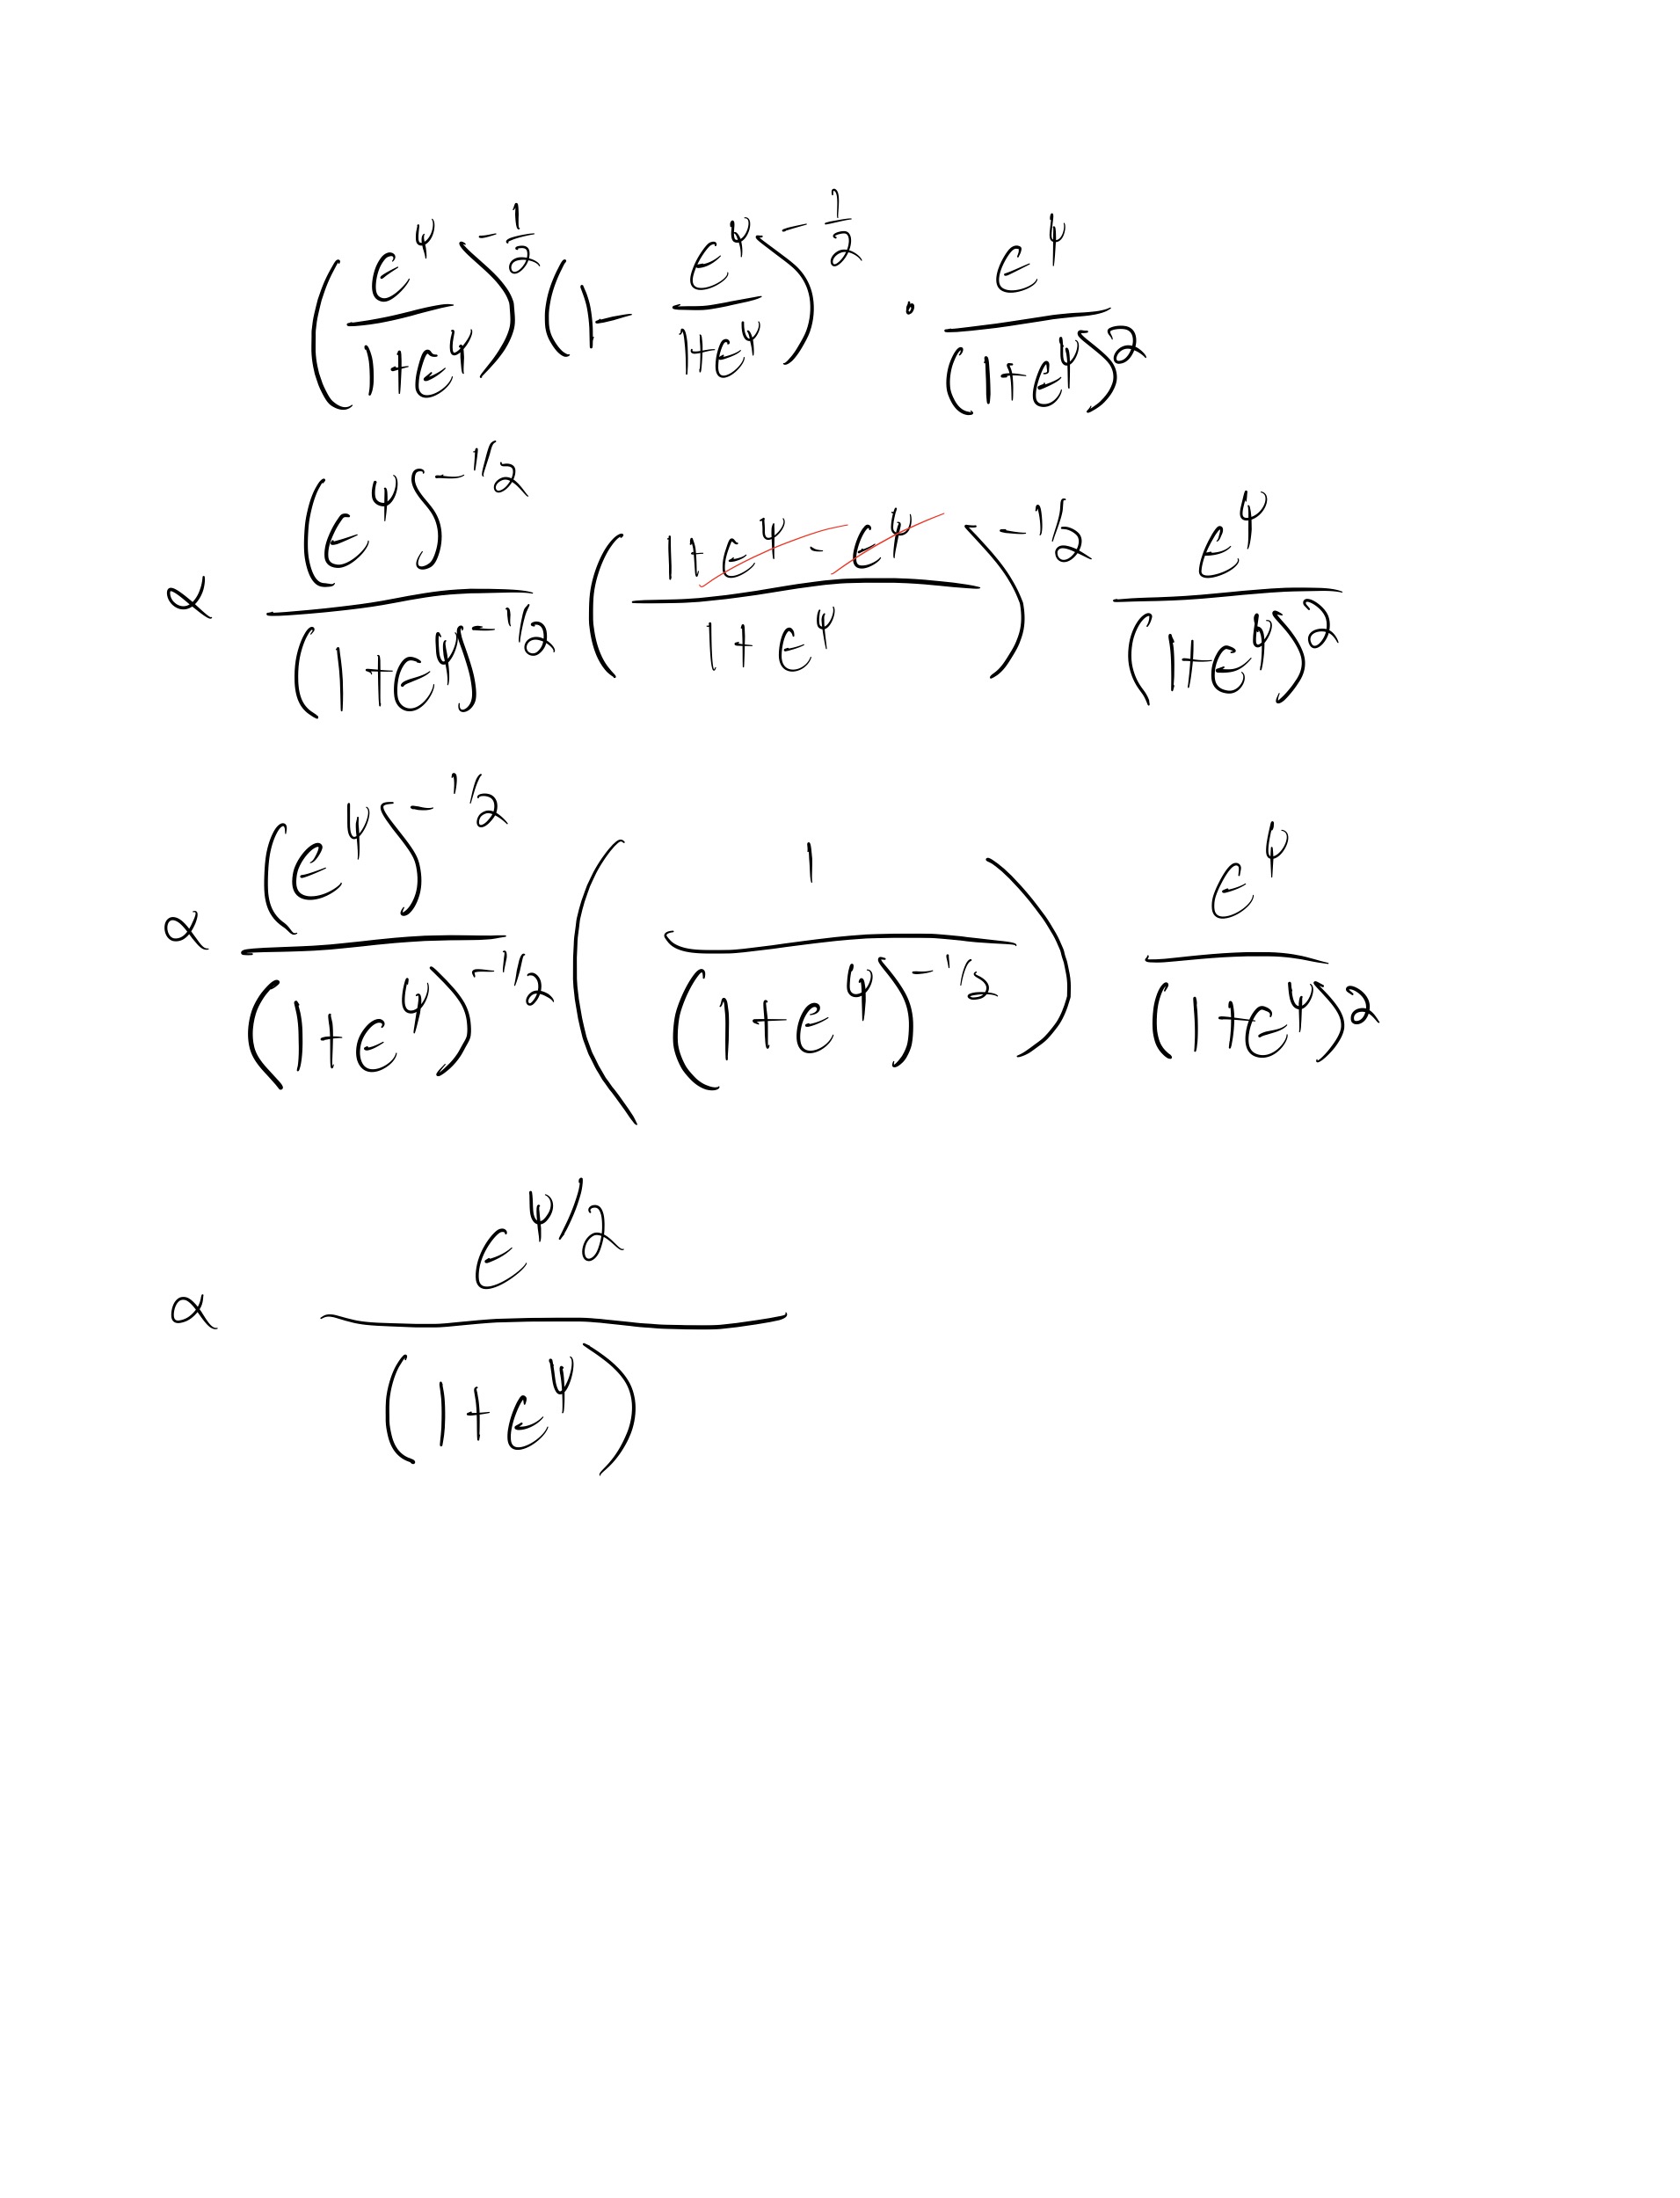 $\left(\frac{e^{\psi}}{1+e^{\psi}}\right)^{-\frac{1}{2}}\left(1-\frac{e^{\psi}}{1+e^{\psi}}\right)^{-\frac{1}{2}} \cdot \frac{e^{\psi}}{(1+e^{\psi})^{2}}$
$\propto \frac{(e^{\psi})^{-1/2}}{(1+e^{\psi})^{-1/2}}\left(\frac{1+\cancel{e^{\psi}}-\cancel{e^{\psi}}}{1+e^{\psi}}\right)^{-1/2}\frac{e^{\psi}}{(1+e^{\psi})^{2}}$
$\propto \frac{(e^{\psi})^{-1/2}}{(1+e^{\psi})^{-1/2}}\left(\frac{1}{(1+e^{\psi})^{-1/2}}\right)\frac{e^{\psi}}{(1+e^{\psi})^{2}}$
$\propto \frac{e^{\psi/2}}{(1+e^{\psi})}$